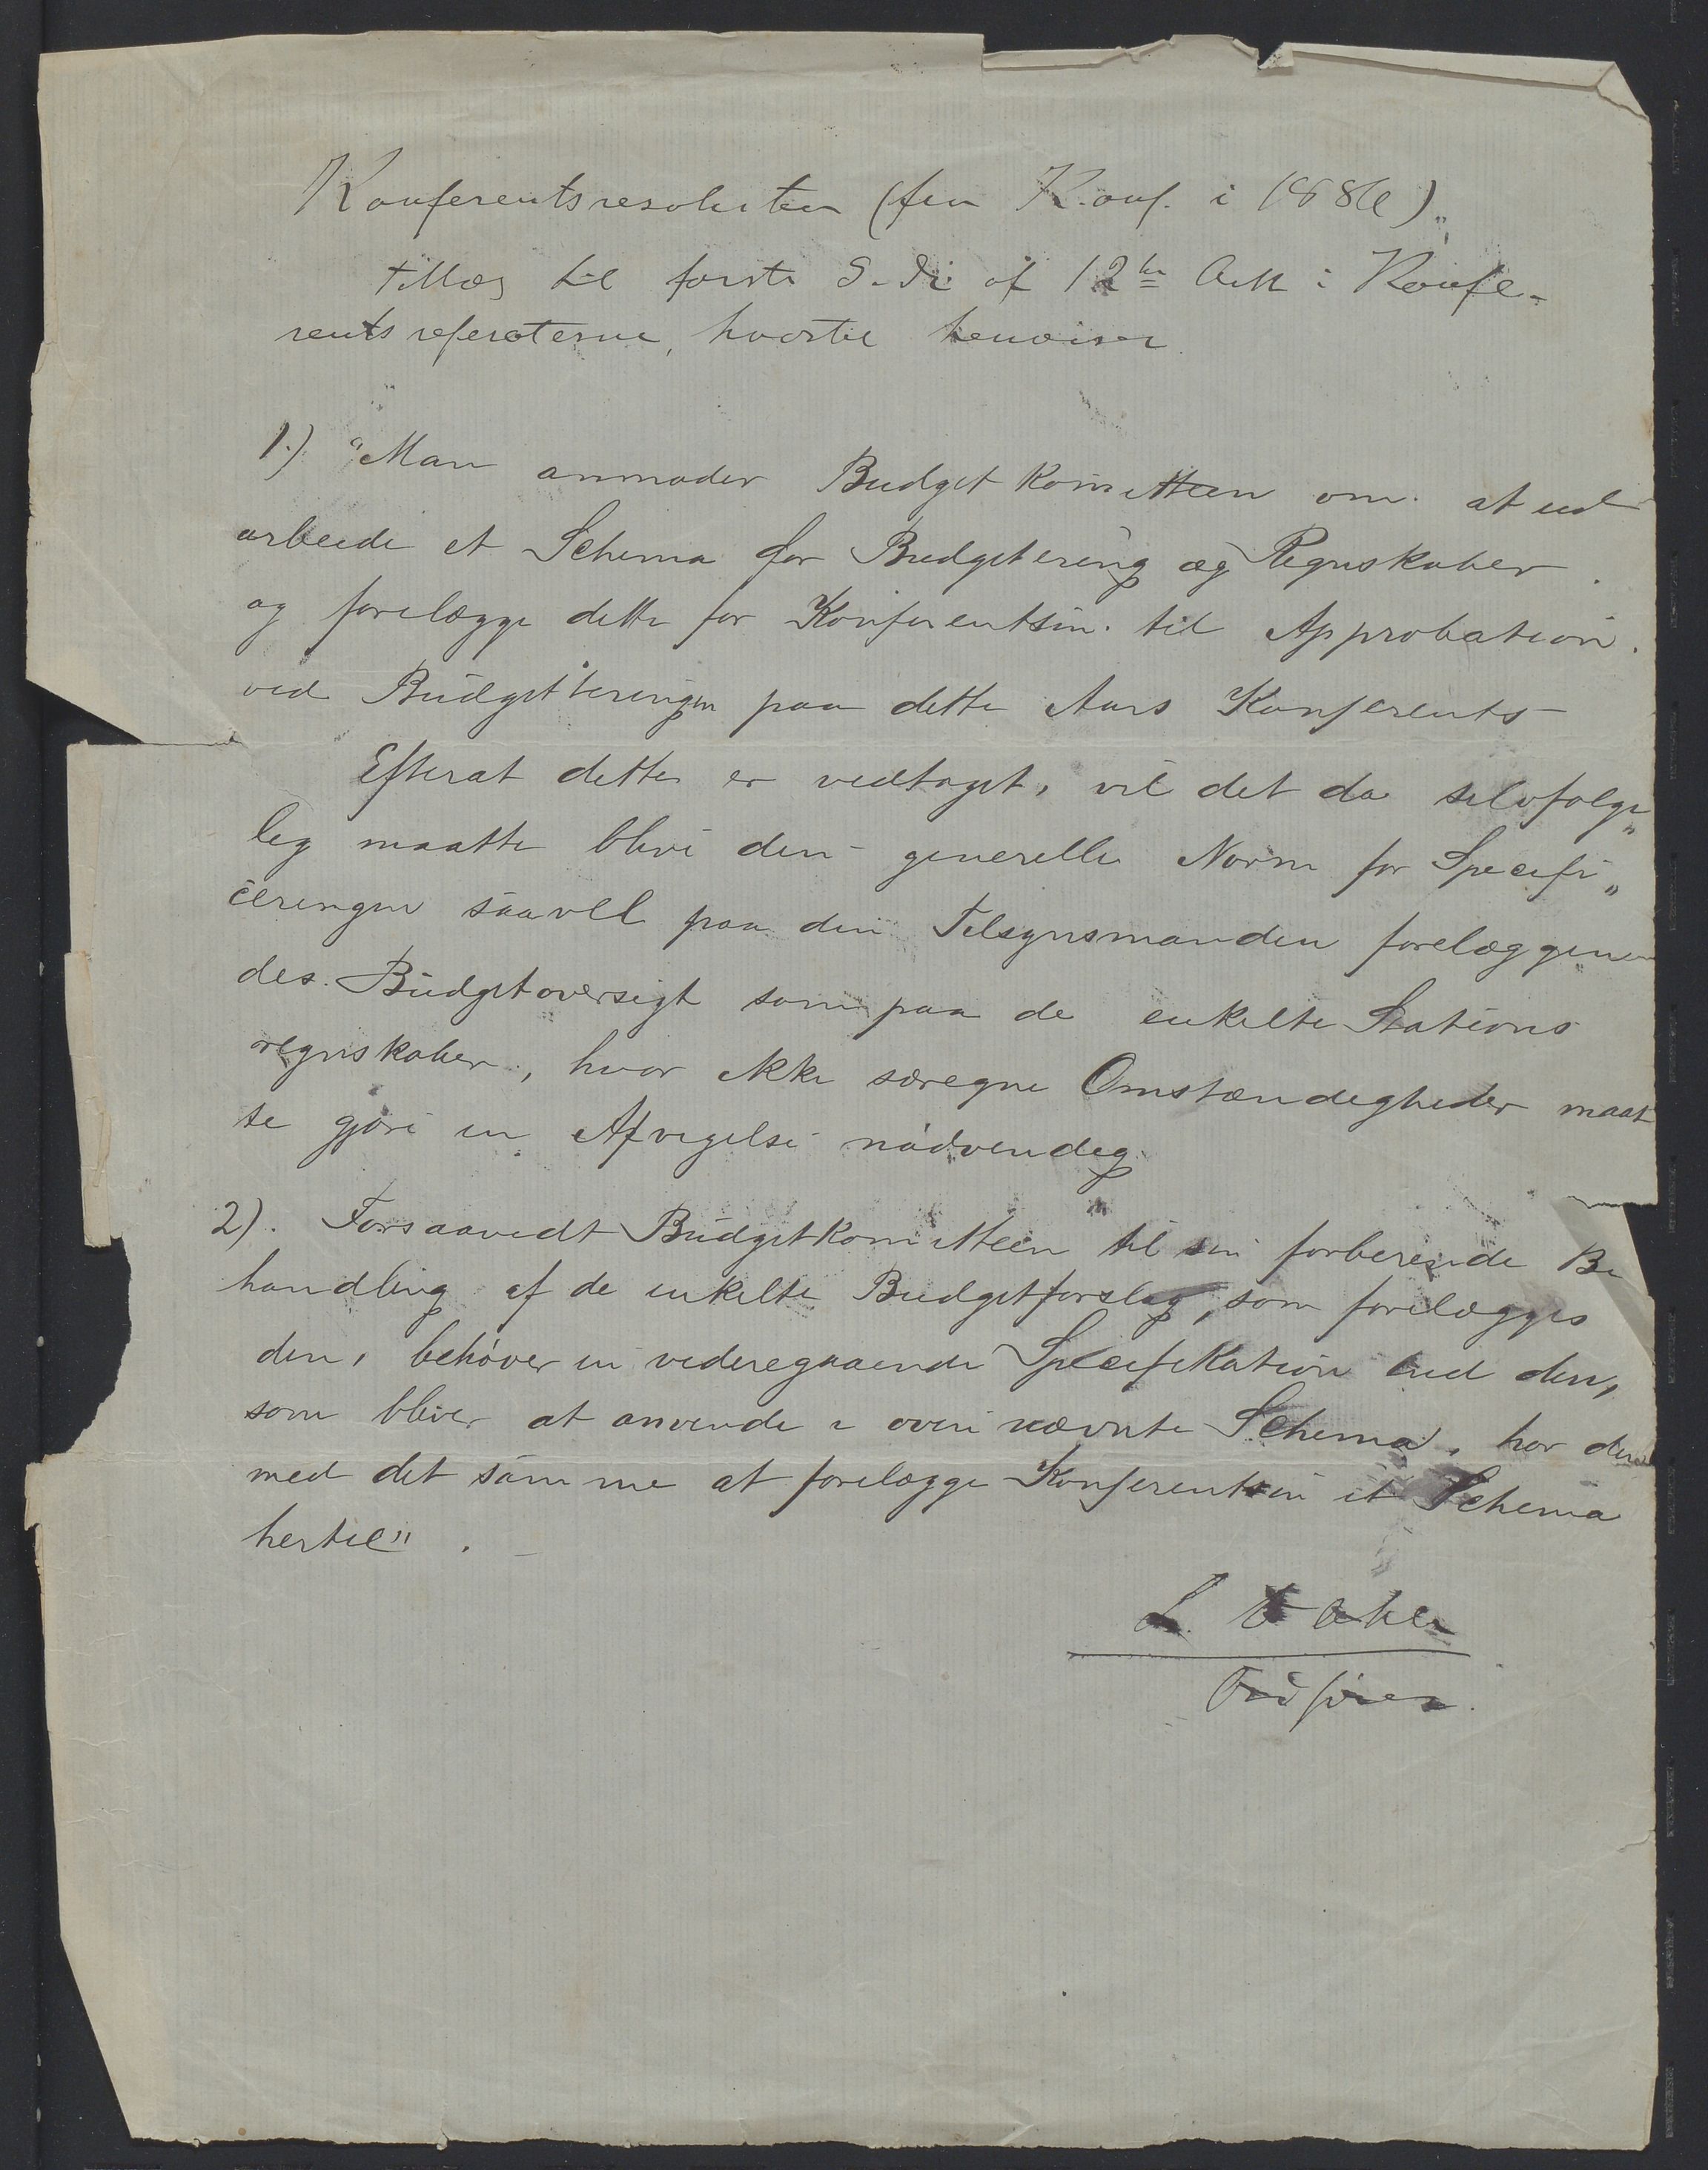 Konferentsresolution (fra Konf. i 1886)"
tillæg til første S. Di af 12te Art i Konfe-
rentsreferaterne, hvortil henvises
1.) "Man anmoder Budgetkomitteen om at ud
arbeide et Schema for Budgetering og Regnskaber
og forelægge dette for Konferentsen til Approbation
ved Budgetteringen paa dette Aars Konferents
Efterat dette er vedtaget, vil det da selvfølge"
lig maatte blive den generelle Norm for Specifi"
ceringen saavel paa den Tilsynsmanden foreleggen
des Budgetoversigt som paa de enkelte Stations
regnskaber, hvor ikke særegne Omstændigheder maat
te gjøre en Afvigelse nødvendig
2). Forsaavidt Budgetkomitteen til sin forberende Be
handling af de enkelte Budgetforslag, som forelægges
den, behøver en videregaaende Specifikation end den,
som bliver at anvende i oven nævnte Schema, har den
med det samme at forelægge Konferentsen et Schema
hertil".
L.
Ordfører.